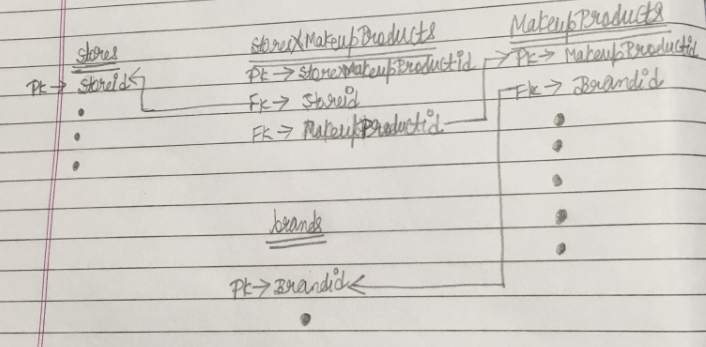 stores
PK → Storeid
StorexMakeupProducts
PK → StorexMakeupProductid
FK → Storeid
FK → MakeupProductid
MakeupProducts
PK → MakeupProductid
FK → Brandid
brands
PK → Brandid